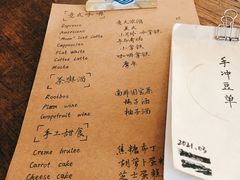 意式咖啡
Espresso 意式浓缩
Americano 美式
Cappuccino
Flat White
Coffee Latte
Mocha 摩卡
茶·啤·酒
Rooibos 南非国宝茶
Plum wine 梅子酒
Grapefruit wine 柚子酒
手工甜食
Creme brulee 焦糖布丁
Carrot cake 胡萝卜蛋糕
Cheese cake 芝士蛋糕
手冲豆单
2021.03